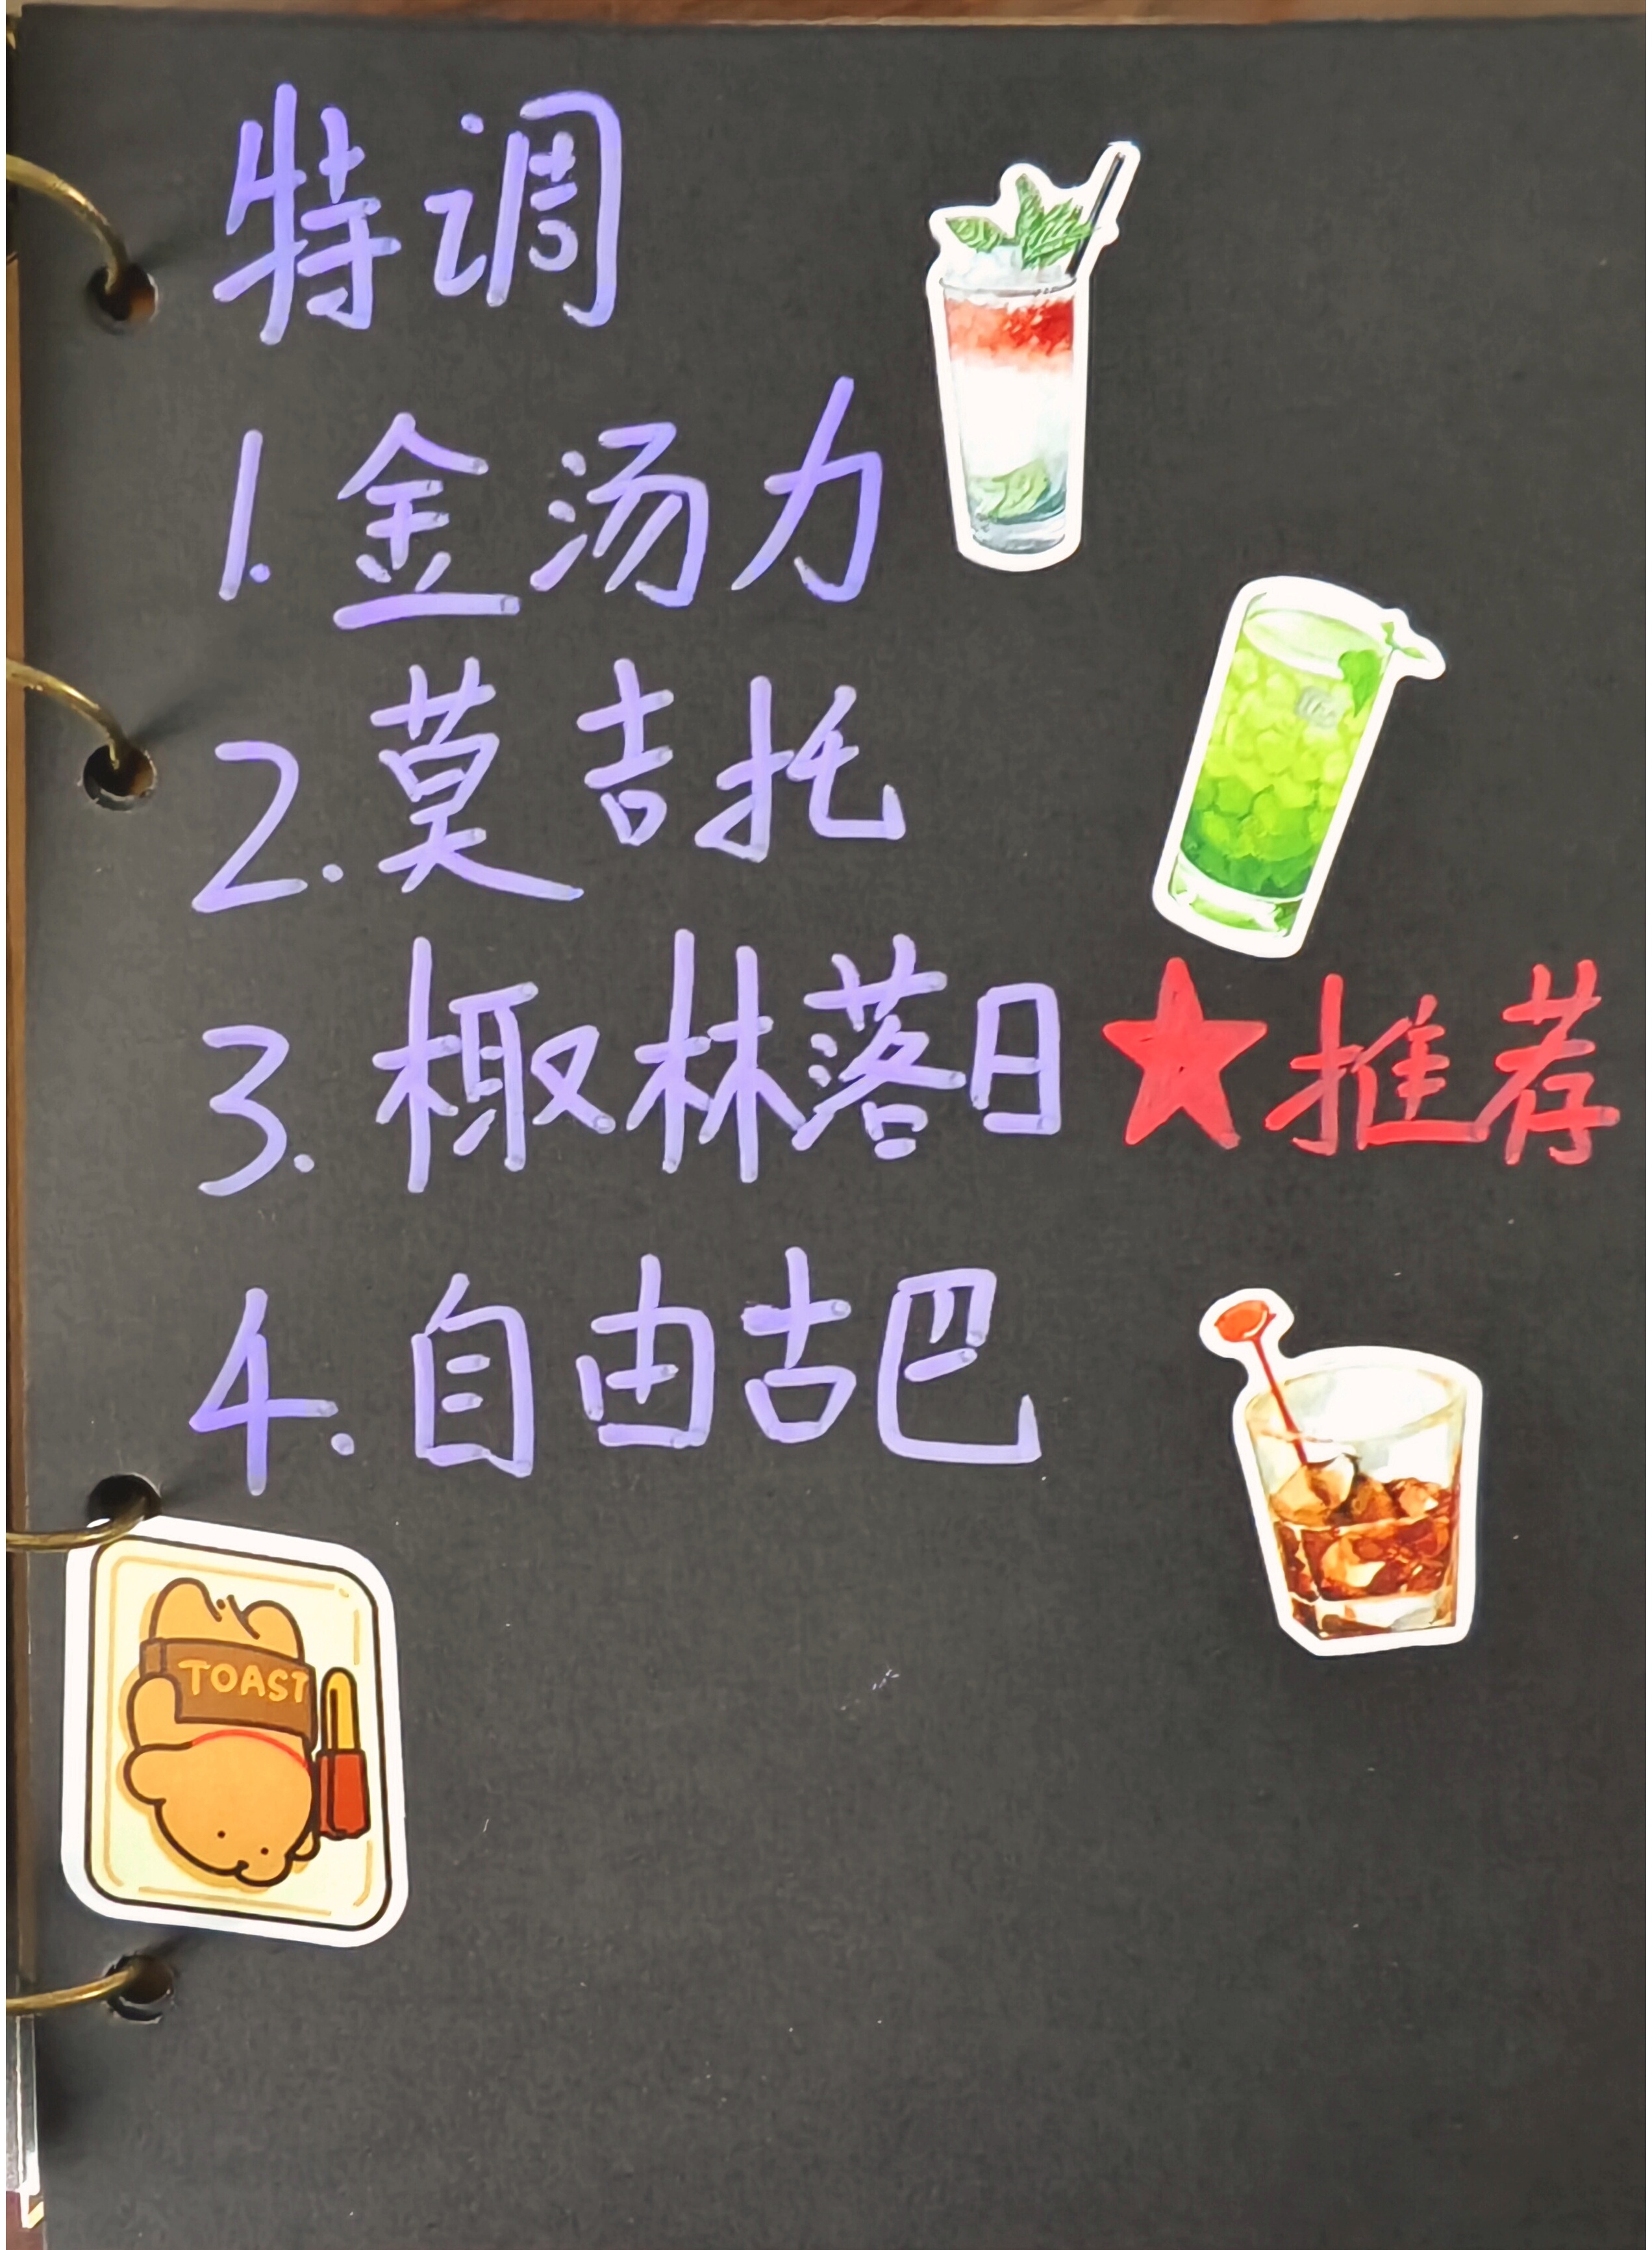 特调
1.金汤力
2.莫吉托
3.椰林落日★推荐
4.自由古巴
TOAST